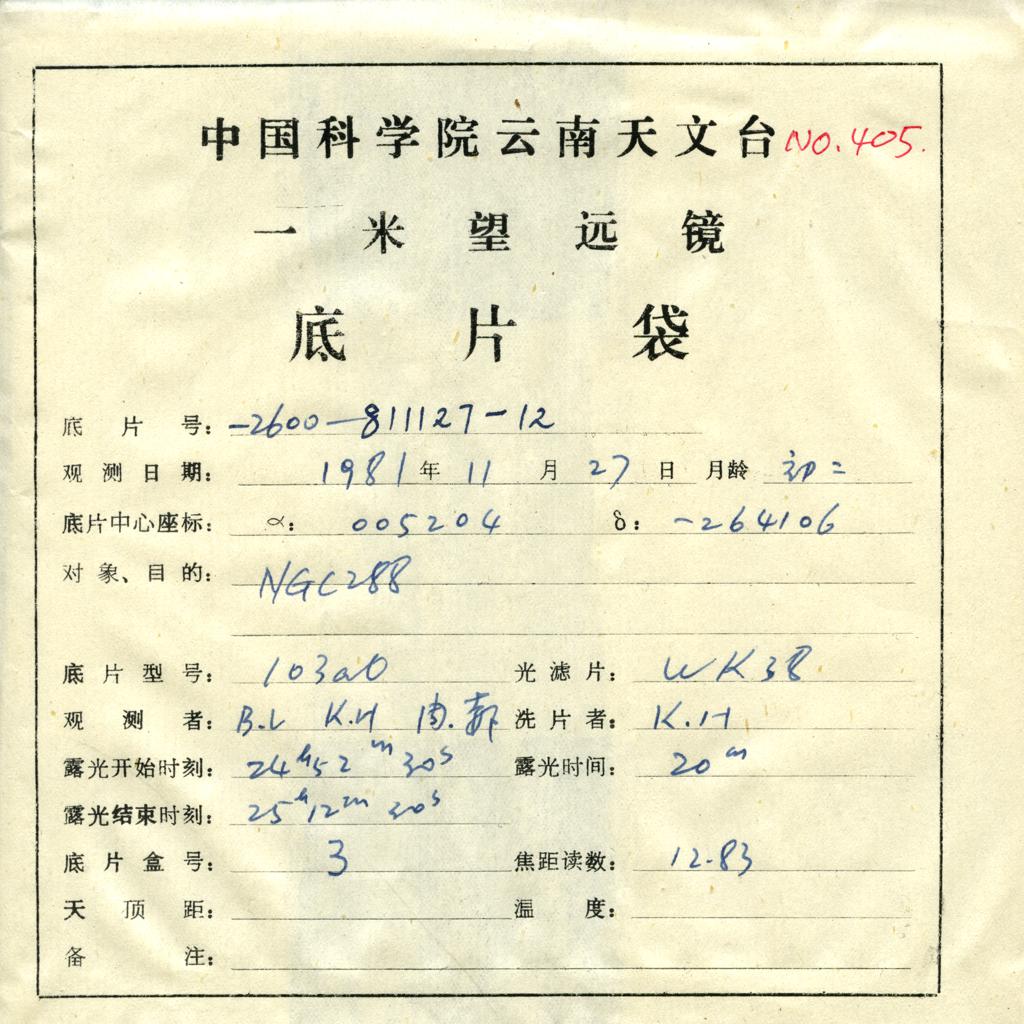 中国科学院云南天文台 NO.405.
一米望远镜
底片袋
底片号: -2600-811127-12
观测日期: 1981年11月27日 月龄 初二
底片中心座标: α: 005204 δ: -264106
对象、目的: NGC288
底片型号: 103aO 光滤片: WK38
观测者: B.L K.H 洗片者: K.H
露光开始时刻: 24h52m30s 露光时间: 20m
露光结束时刻: 25h12m30s
底片盒号: 3 焦距读数: 12.83
天顶距: 温度:
备注: